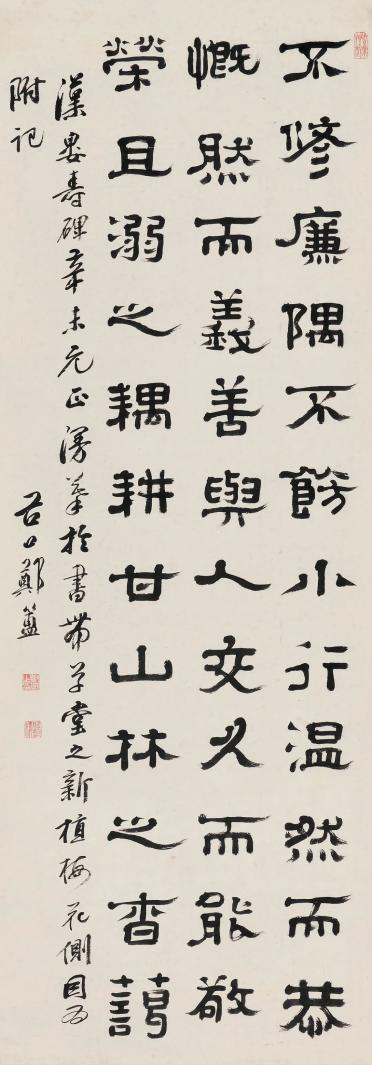 不修廉隅不飭小行温然而恭
慨然而義善與人交久而能敬
榮且溺之耦耕甘山林之杳藹
漢婁壽碑辛未元正漫摹於書帶草堂之新植梅花側因為
附記
谷口鄭簠